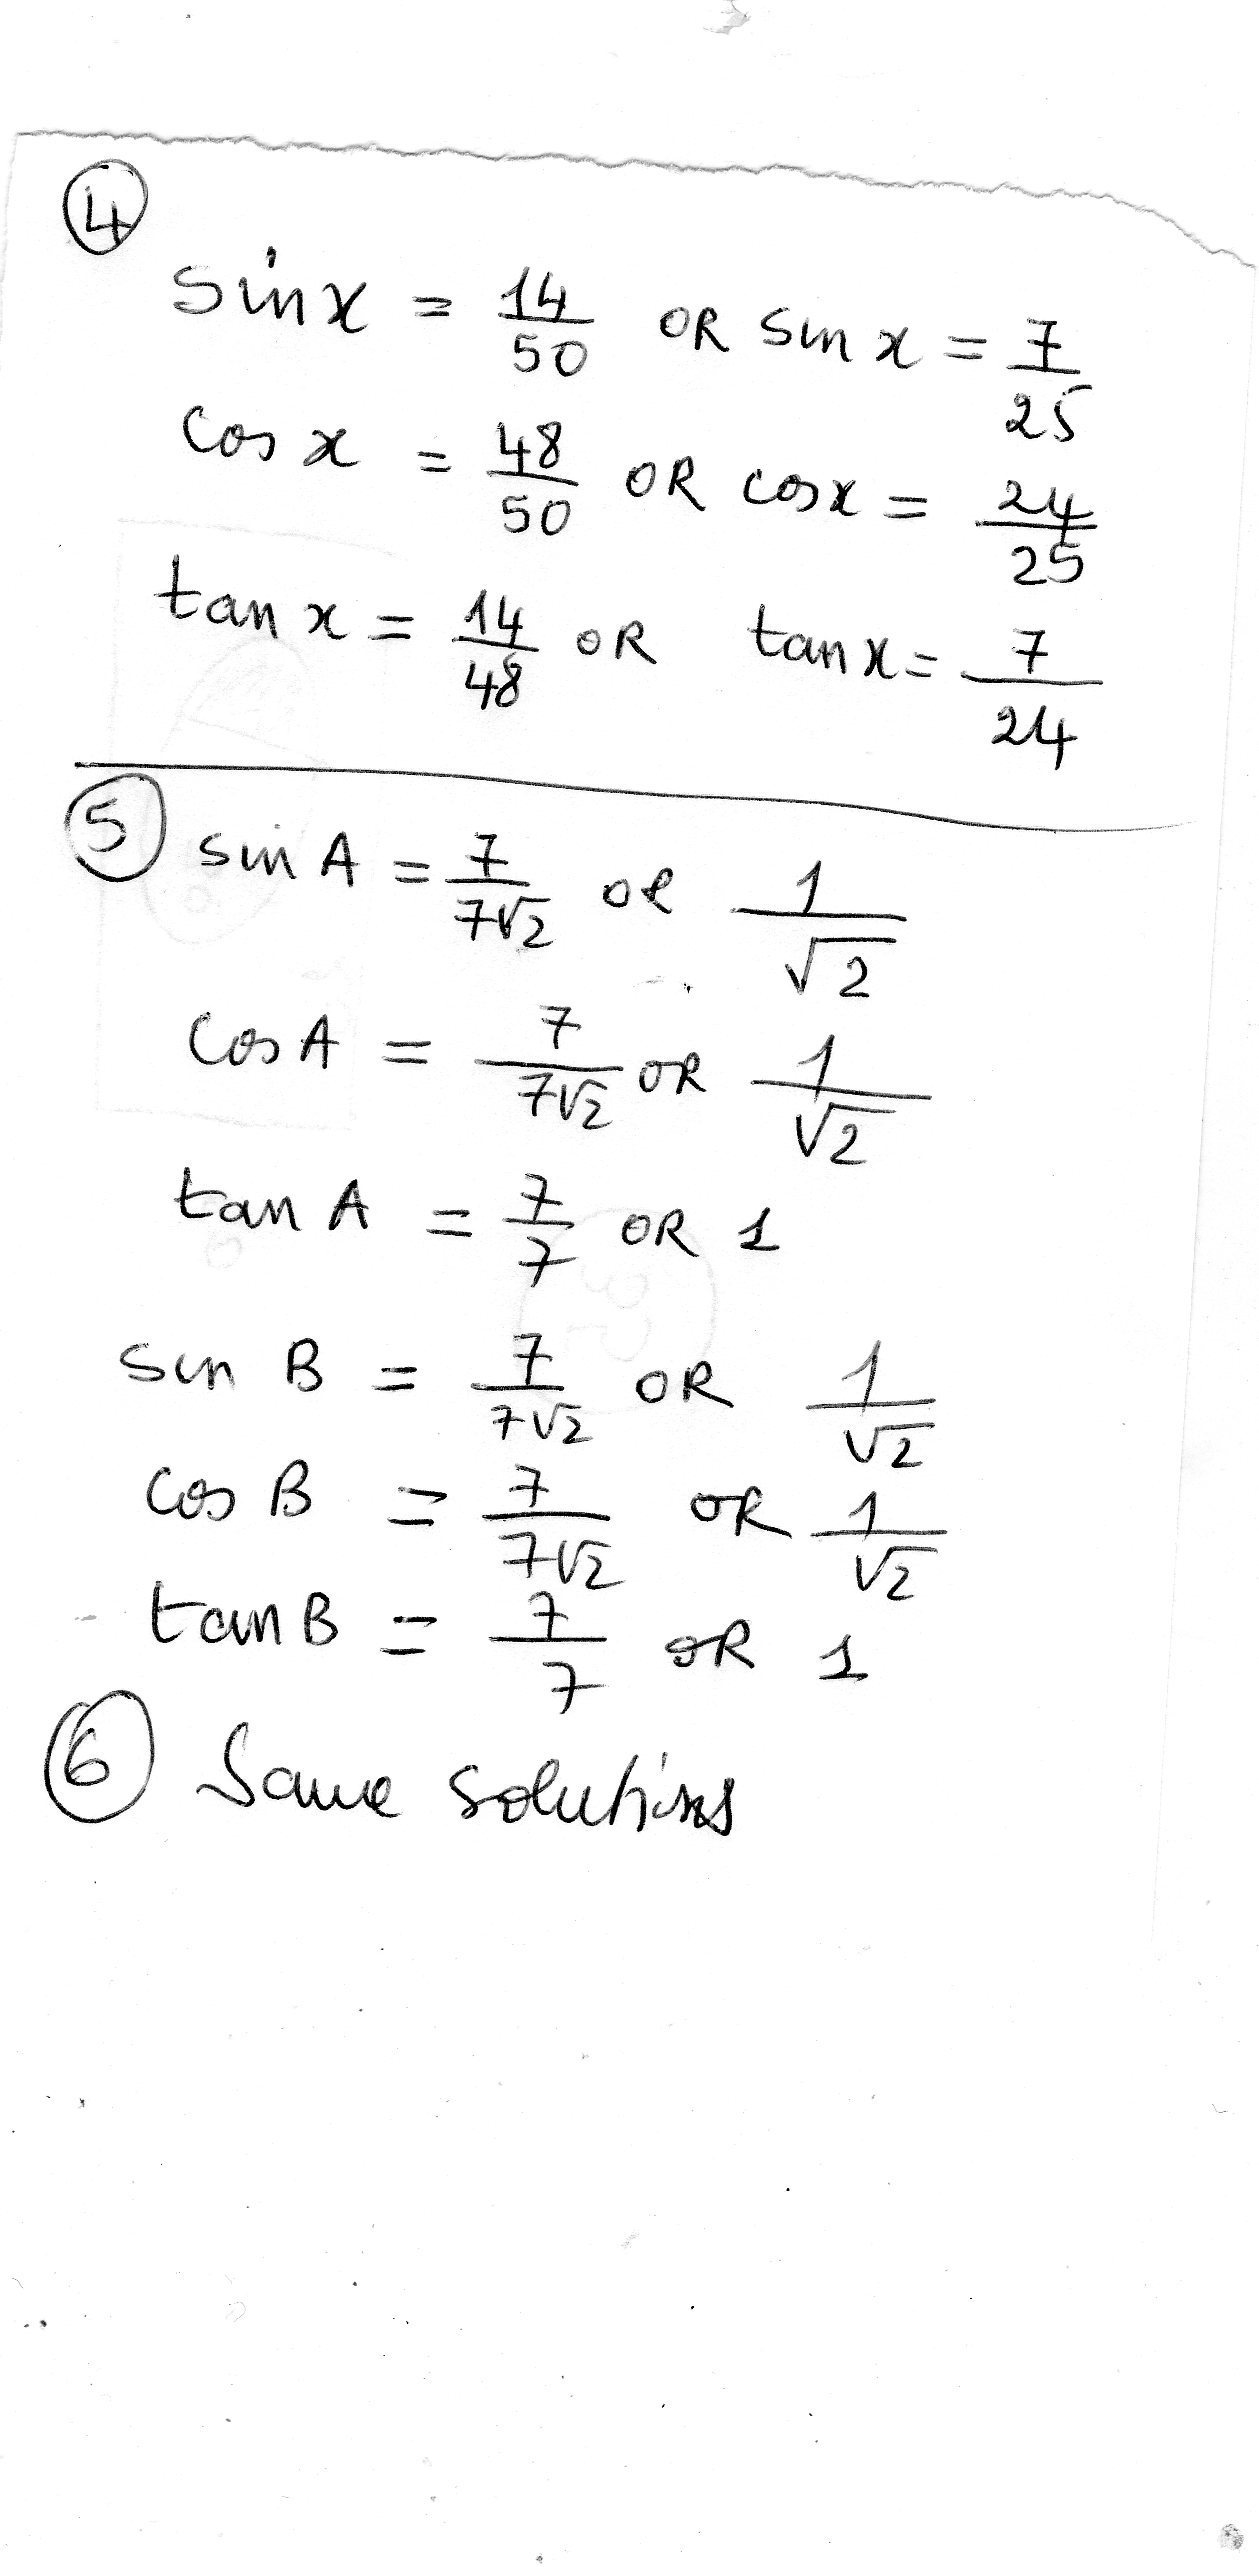 ④
sin x = 14/50 OR sin x = 7/25
cos x = 48/50 OR cos x = 24/25
tan x = 14/48 OR tan x = 7/24
⑤ sin A = 7/7√2 OR 1/√2
cos A = 7/7√2 OR 1/√2
tan A = 7/7 OR 1
sin B = 7/7√2 OR 1/√2
cos B = 7/7√2 OR 1/√2
tan B = 7/7 OR 1
⑥ Same solutions